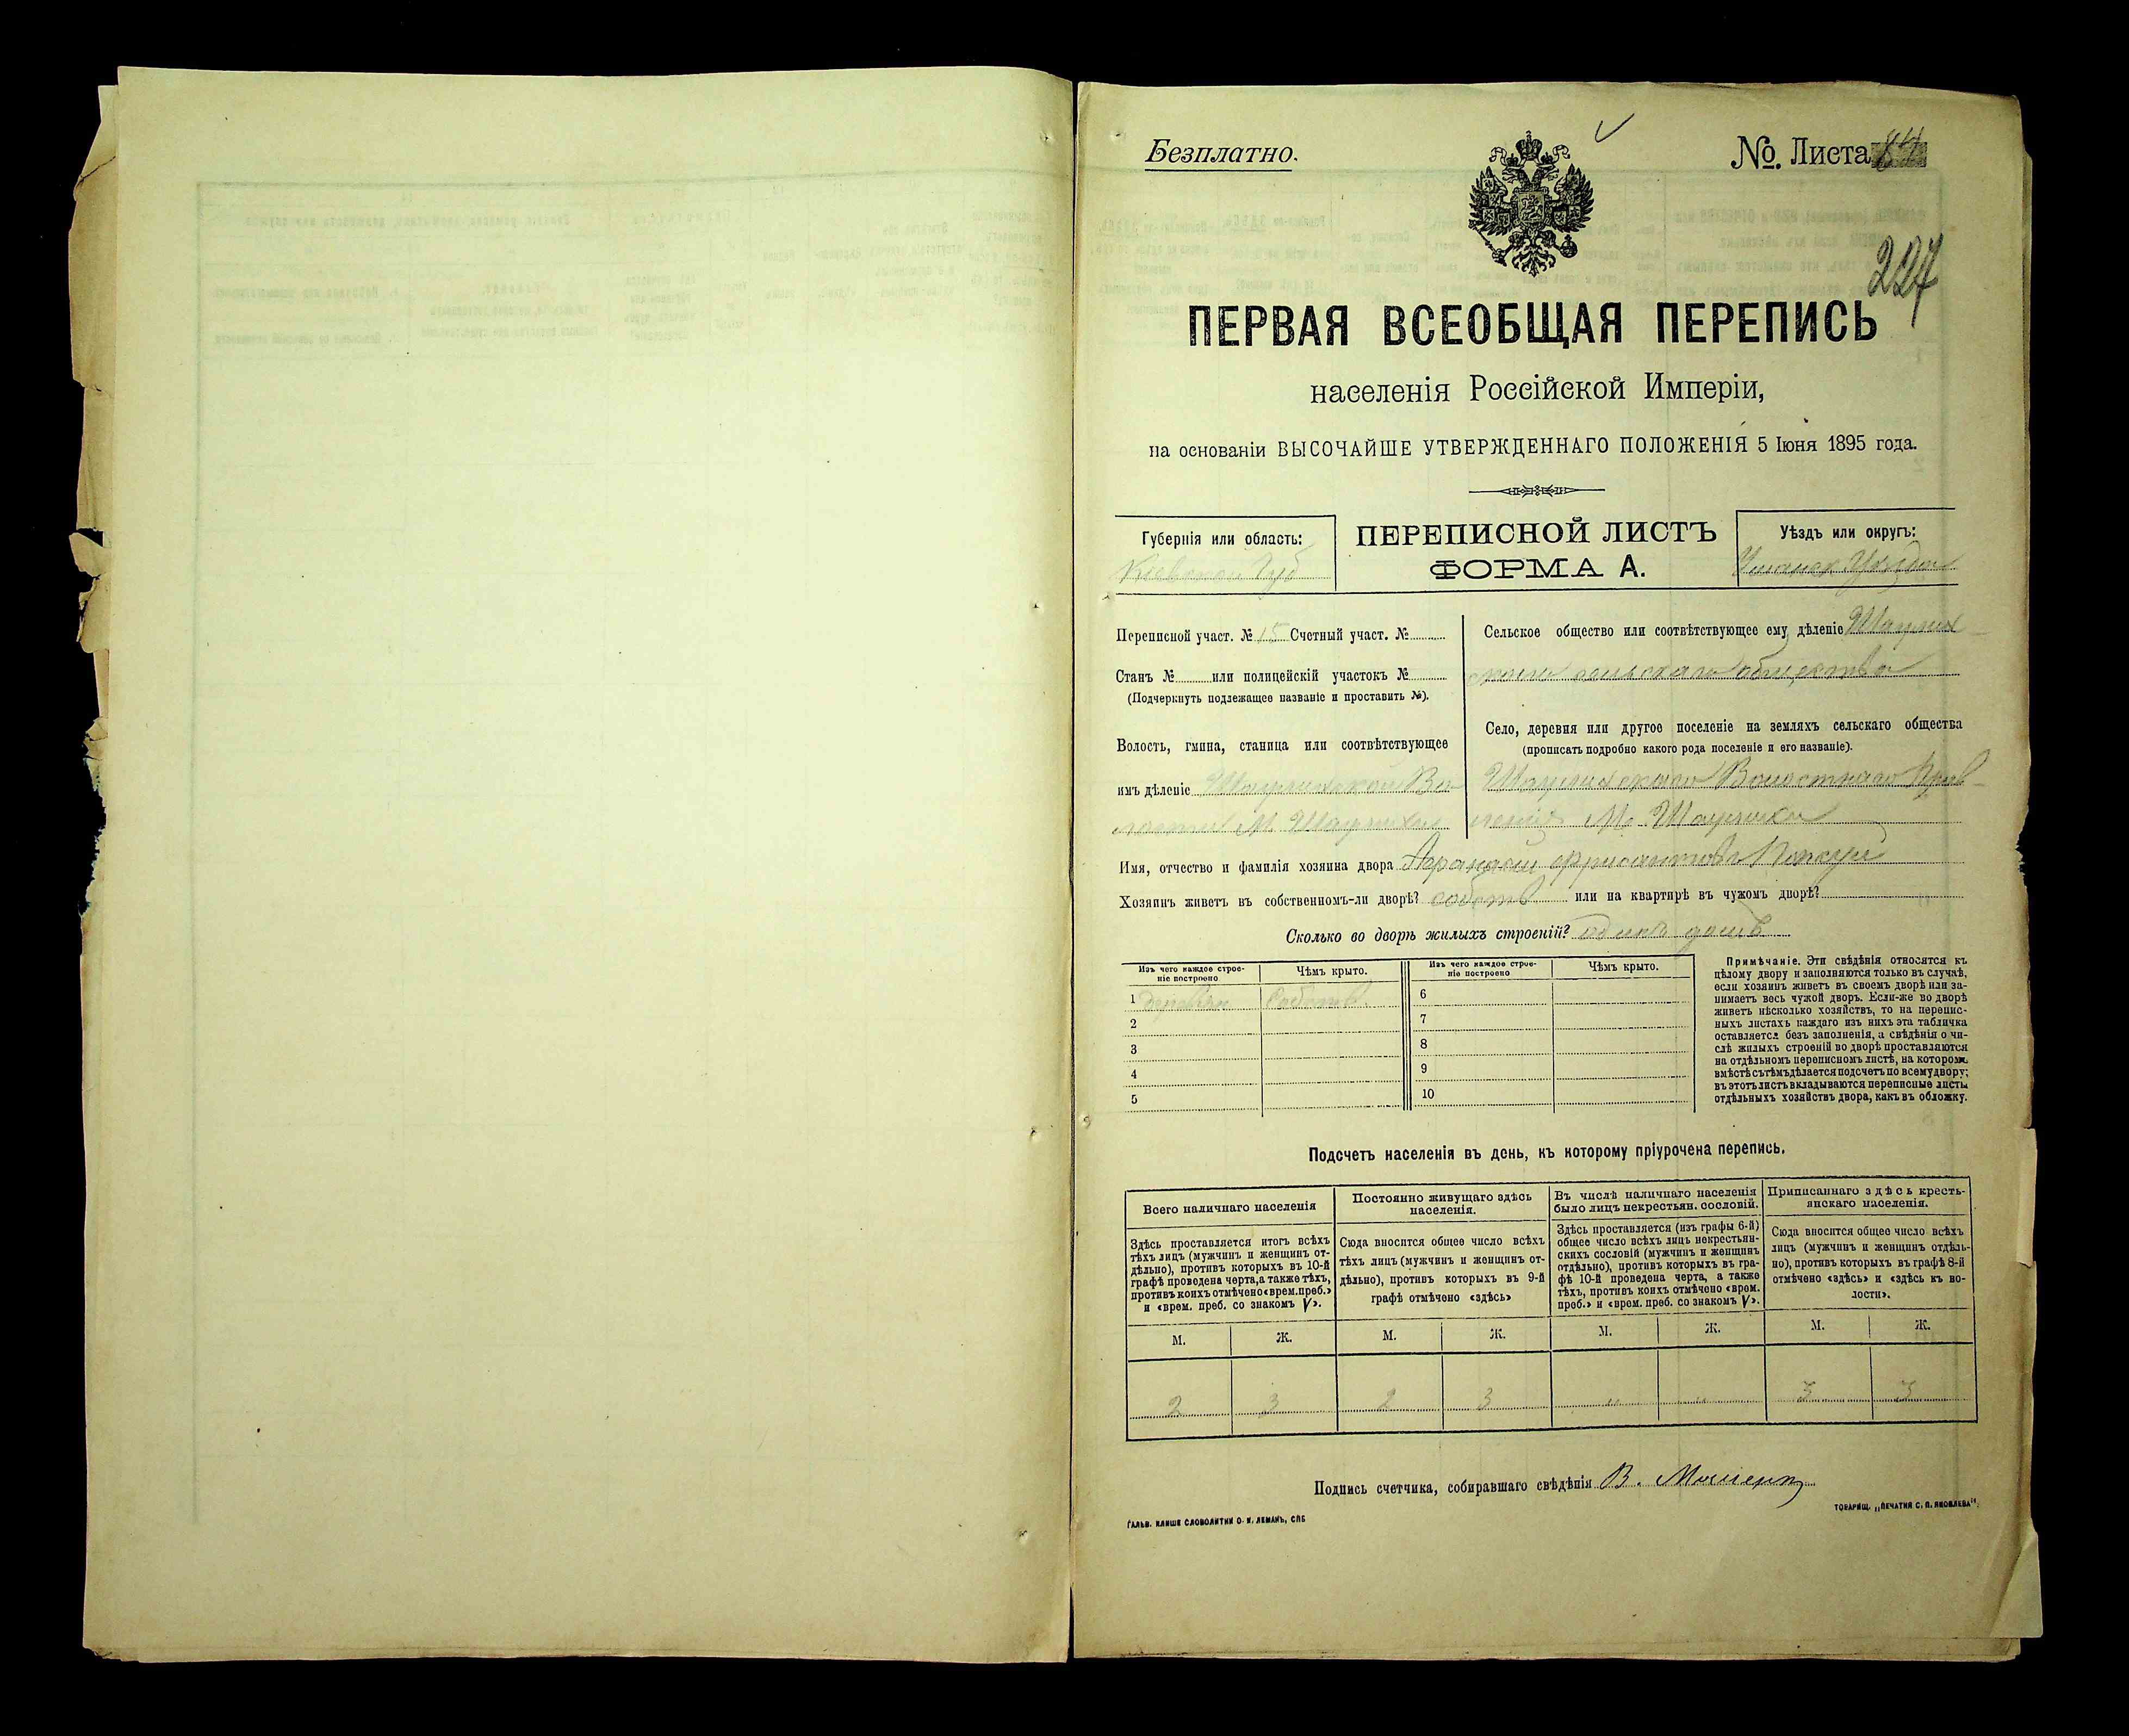 Безплатно.
№. Листа
227
ПЕРВАЯ ВСЕОБЩАЯ ПЕРЕПИСЬ
населенія Россійской Имперіи,
на основаніи ВЫСОЧАЙШЕ УТВЕРЖДЕННАГО ПОЛОЖЕНІЯ 5 Іюня 1895 года.
Губернія или область:
Кіевской Губ
ПЕРЕПИСНОЙ ЛИСТЪ
ФОРМА А.
Уѣздъ или округъ:
Уманск Уѣзда
Переписной участ. № 15 Счетный участ. №
Станъ № или полицейскій участокъ №
(Подчеркнуть подлежащее названіе и проставить №).
Волость, гмина, станица или соотвѣтствующее
имъ дѣленіе Шаулихской Во
лости М. Шаулиха
Сельское общество или соотвѣтствующее ему дѣленіе Шаулих
скаго сельскаго общества
Село, деревня или другое поселеніе на земляхъ сельскаго общества
(прописать подробно какого рода поселеніе и его названіе).
Шаулихскаго Волостнаго Прав
ленія М. Шаулиха
Имя, отчество и фамилія хозяина двора
Хозяинъ живетъ въ собственномъ-ли дворѣ? собств или на квартирѣ въ чужомъ дворѣ?
Сколько во дворѣ жилыхъ строеній? одинъ домъ
Изъ чего каждое строе-
ніе построено
Чѣмъ крыто.
Изъ чего каждое строе-
ніе построено
Чѣмъ крыто.
1 деревян
2
3
4
5
6
7
8
9
10
Примѣчаніе. Эти свѣдѣнія относятся къ
цѣлому двору и заполняются только въ случаѣ,
если хозяинъ живетъ въ своемъ дворѣ или за-
нимаетъ весь чужой дворъ. Если-же во дворѣ
живетъ нѣсколько хозяйствъ, то на перепис-
ныхъ листахъ каждаго изъ нихъ эта табличка
оставляется безъ заполненія, а свѣдѣнія о чи-
слѣ жилыхъ строеній во дворѣ проставляются
на отдѣльномъ переписномъ листѣ, на которомъ
вмѣстѣ съ тѣмъ дѣлается подсчетъ по всему двору;
въ этотъ листъ вкладываются переписные листы
отдѣльныхъ хозяйствъ двора, какъ въ обложку.
Подсчетъ населенія въ день, къ которому пріурочена перепись.
Всего наличнаго населенія
Здѣсь проставляется итогъ всѣхъ
тѣхъ лицъ (мужчинъ и женщинъ от-
дѣльно), противъ которыхъ въ 10-й
графѣ проведена черта, а также тѣхъ,
противъ коихъ отмѣчено «врем. преб.»
и «врем. преб. со знакомъ V».
Постоянно живущаго здѣсь
населенія.
Сюда вносится общее число всѣхъ
тѣхъ лицъ (мужчинъ и женщинъ от-
дѣльно), противъ которыхъ въ 9-й
графѣ отмѣчено «здѣсь»
Въ числѣ наличнаго населенія
было лицъ некрестьян. сословій.
Здѣсь проставляется (изъ графы 6-й)
общее число всѣхъ лицъ некрестьян-
скихъ сословій (мужчинъ и женщинъ
отдѣльно), противъ которыхъ въ гра-
фѣ 10-й проведена черта, а также
тѣхъ, противъ коихъ отмѣчено «врем.
преб.» и «врем. преб. со знакомъ V».
Приписаннаго здѣсь кресть-
янскаго населенія.
Сюда вносится общее число всѣхъ
лицъ (мужчинъ и женщинъ отдѣль-
но), противъ которыхъ въ графѣ 8-й
отмѣчено «здѣсь» и «здѣсь къ во-
лости».
М. Ж. М. Ж. М. Ж. М. Ж.
2 3 2 3 " " 3 3
Подпись счетчика, собиравшаго свѣдѣнія В.
ГАЛЬВ. КЛИШЕ СЛОВОЛИТНИ О. И. ЛЕМАНЪ, СПБ
ТОВАРИЩ. „ПЕЧАТНЯ С. П. ЯКОВЛЕВА“.